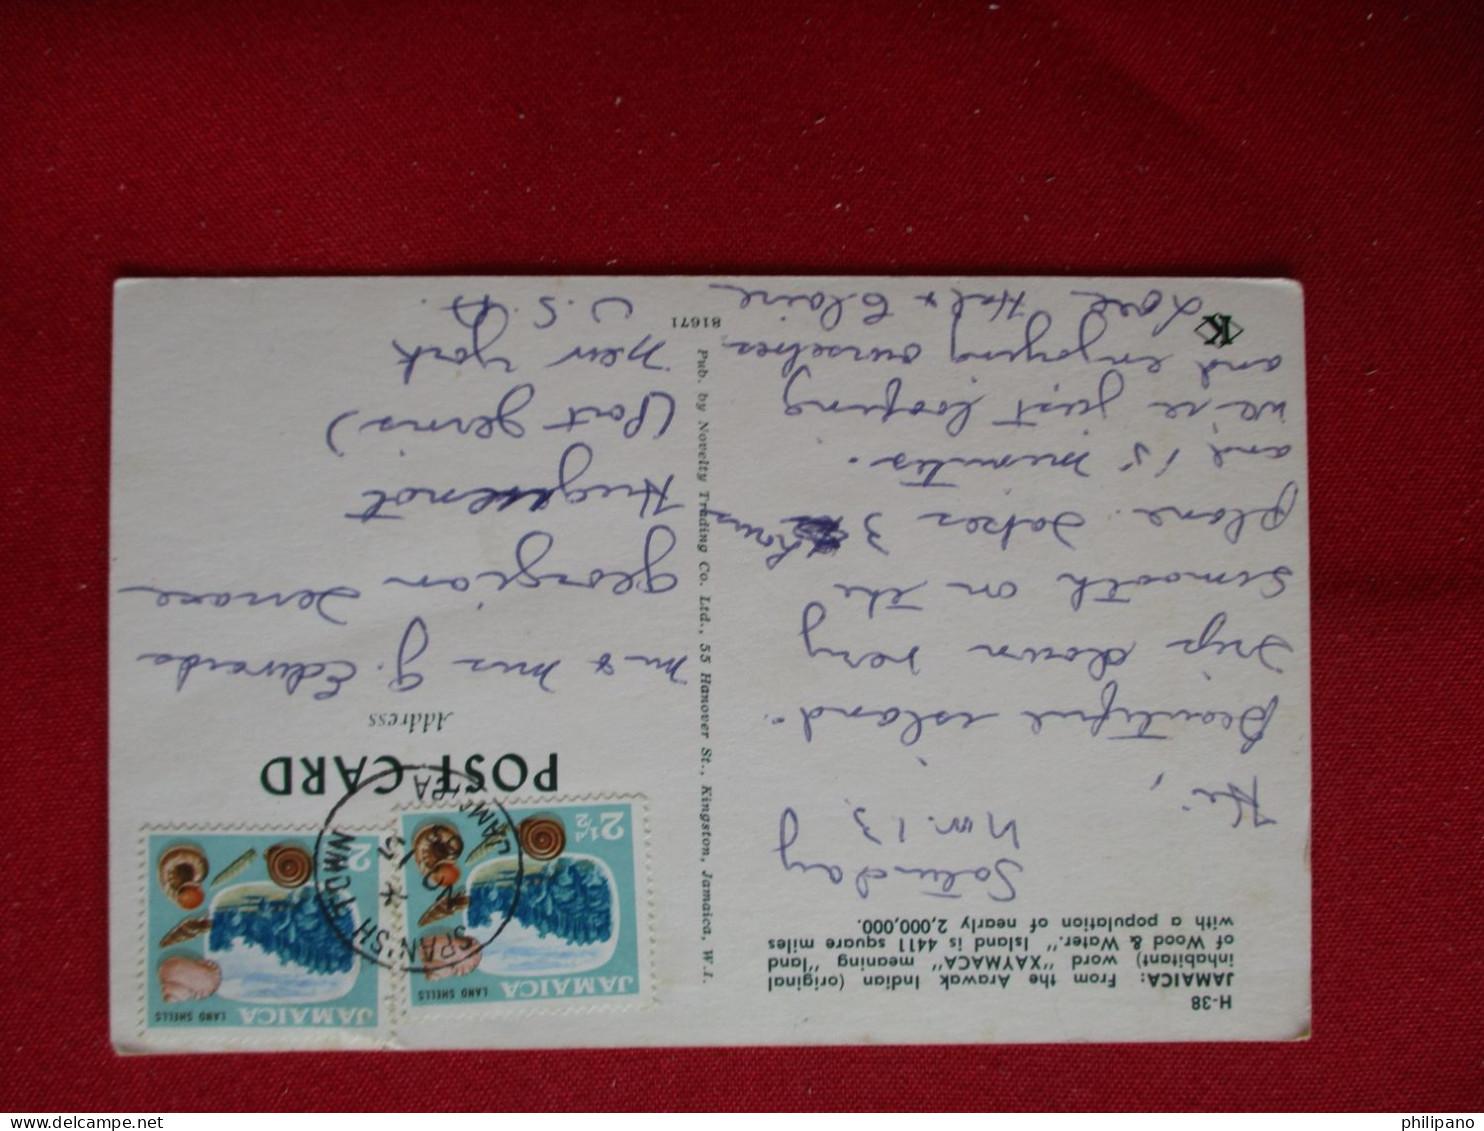 H-38
JAMAICA: From the Arawak Indian (original
inhabitant) word "XAYMACA" meaning "land
of Wood & Water." Island is 4411 square miles
with a population of nearly 2,000,000.
Saturday
Nov. 13
Hi,
Beautiful island.
Trip down very
smooth on the
plane. Takes 3 hours
and 15 minutes.
We're just loafing
and enjoying ourselves
Love Hal & Claire
K
Pub. by Novelty Trading Co. Ltd., 55 Hanover St., Kingston, Jamaica, W.I.
81671
JAMAICA
LAND SHELLS
2½d
JAMAICA
LAND SHELLS
2
SPANISH TOWN
JAMAICA
POST CARD
Address
Mr & Mrs J. Edwards
Georgian Terrace
Huguenot
(Port Jervis)
New York
U.S.A.
philipano